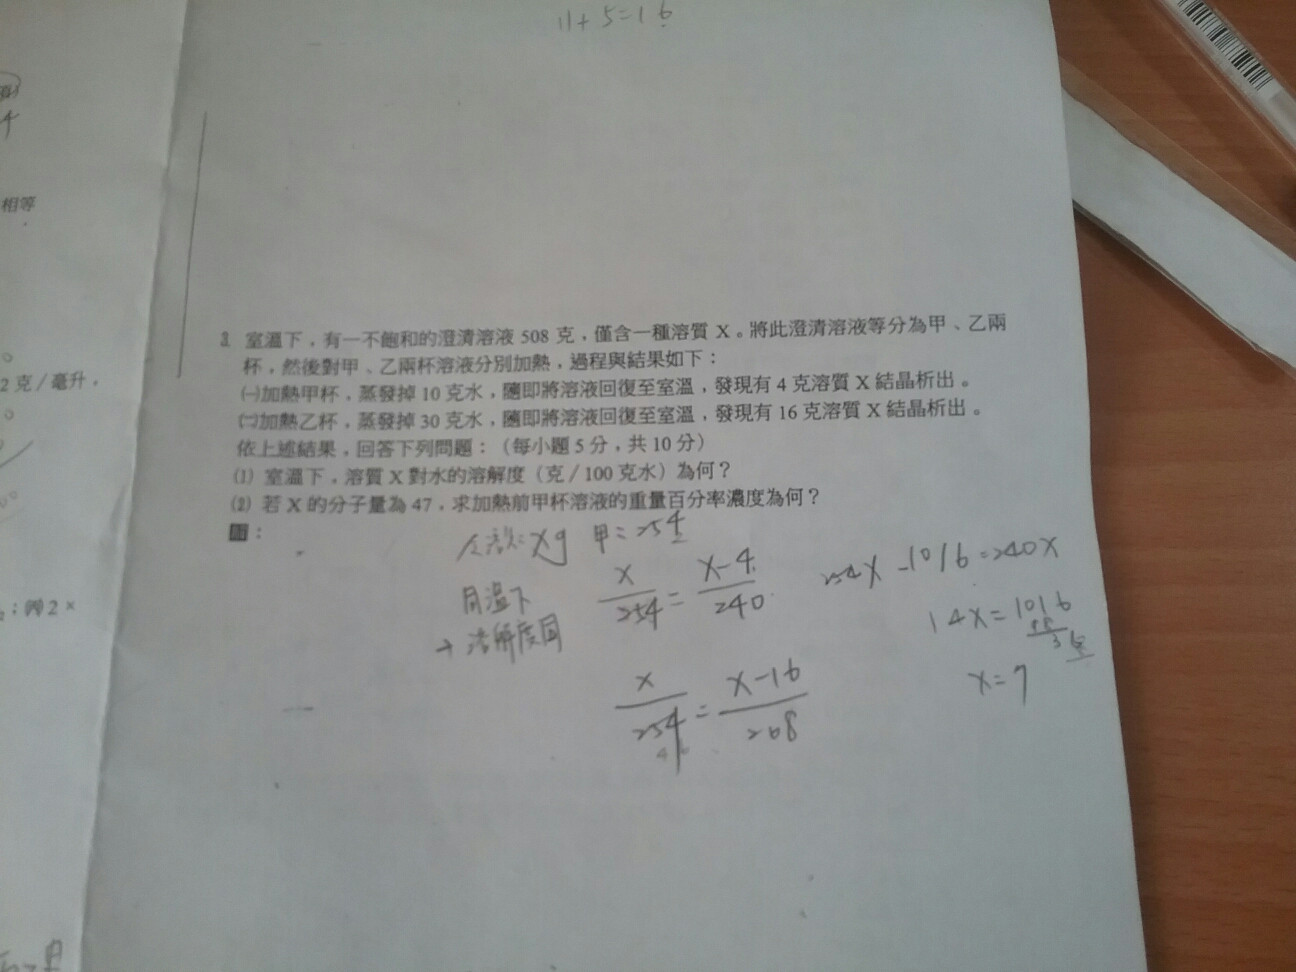 11+5=16
相等
2克/毫升,
3. 室溫下,有一不飽和的澄清溶液 508 克,僅含一種溶質 X。將此澄清溶液等分為甲、乙兩
杯,然後對甲、乙兩杯溶液分別加熱,過程與結果如下:
㈠加熱甲杯,蒸發掉 10 克水,隨即將溶液回復至室溫,發現有 4 克溶質 X 結晶析出。
㈡加熱乙杯,蒸發掉 30 克水,隨即將溶液回復至室溫,發現有 16 克溶質 X 結晶析出。
依上述結果,回答下列問題:(每小題 5 分,共 10 分)
⑴ 室溫下,溶質 X 對水的溶解度(克/100 克水)為何?
⑵ 若 X 的分子量為 47,求加熱前甲杯溶液的重量百分率濃度為何?
:
Xg 甲=254
X/254 = X-4/240
254X-1016=240X
同溫下
14X=1016
→溶解度同
X=7
X/254 = X-16/208